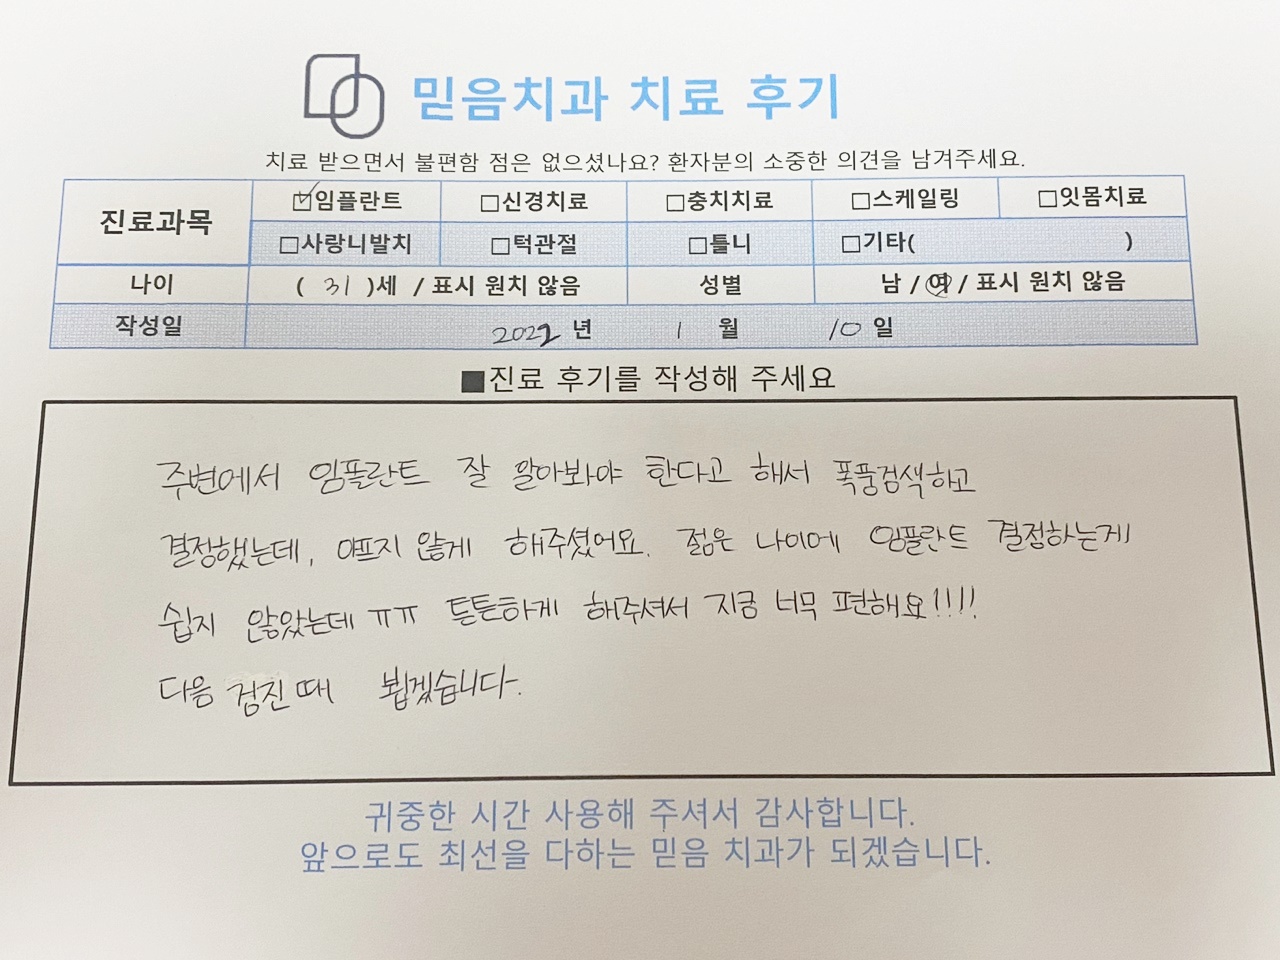 믿음치과 치료 후기
치료 받으면서 불편함 점은 없으셨나요? 환자분의 소중한 의견을 남겨주세요.
진료과목 ☑임플란트 □신경치료 □충치치료 □스케일링 □잇몸치료
□사랑니발치 □턱관절 □틀니 □기타( )
나이 ( 31 )세 / 표시 원치 않음 성별 남 / 여 / 표시 원치 않음
작성일 2022 년 1 월 10 일
■진료 후기를 작성해 주세요
주변에서 임플란트 잘 알아봐야 한다고 해서 폭풍검색하고
결정했는데, 아프지 않게 해주셨어요. 젊은 나이에 임플란트 결정하는게
쉽지 않았는데 ㅠㅠ 튼튼하게 해주셔서 지금 너무 편해요!!!!
다음 검진때 뵙겠습니다.
귀중한 시간 사용해 주셔서 감사합니다.
앞으로도 최선을 다하는 믿음 치과가 되겠습니다.